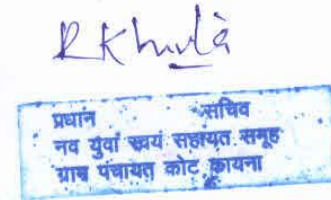 प्रधान सचिव
नव युवां स्वयं सहायत समूह
ग्राम पंचायत कोट कायना